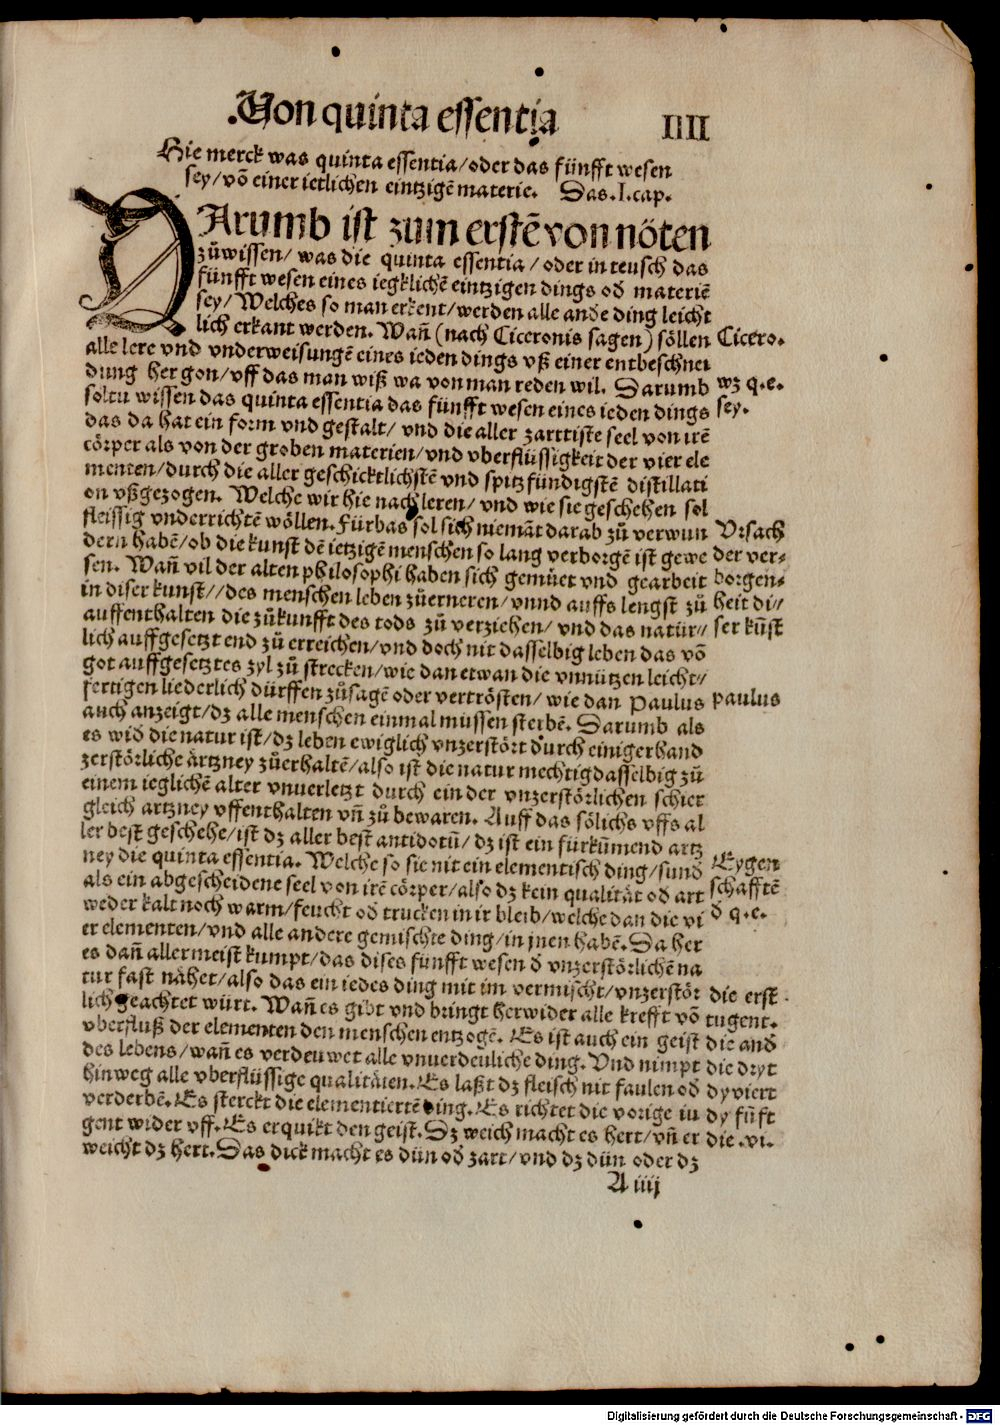 .Von quinta essentia
IIII
Hie merck was quinta essentia/oder das fünfft wesen
sey/võ einer ietlichen eintzigẽ materie. Das.I.cap.
DArumb ist zum erstẽ von nöten
zůwissen/was die quinta essentia/oder in teusch das
fünfft wesen eines iegklichẽ eintzigen dings oď materiẽ
sey/Welches so man erkent/werden alle anďe ding leicht
lich erkant werden. Wañ (nach Ciceronis sagen) söllen
Cicero.
alle lere vnd vnderweisungẽ eines ieden dings vß einer entbeschnei
dung her gon/vff das man wiß wa von man reden wil. Darumb
wz q.e.
soltu wissen das quinta essentia das fünfft wesen eines ieden dings
sey.
das da hat ein form vnd gestalt/vnd die aller zarttiste seel von irẽ
cörper als von der groben materien/vnd vberflüssigkeit der vier ele
menten/durch die aller geschicktlichstẽ vnd spitzfündigstẽ distillati
on vßgezogen. Welche wir hie nach leren/vnd wie sie geschehen sol
fleissig vnderrichtẽ wöllen. Fürbas sol sich niemãt darab zů verwun
Vrsach
dern habẽ/ob die kunst dẽ ietzigẽ menschen so lang verborgẽ ist gewe
der ver-
sen. Wañ vil der alten philosophi haben sich gemüet vnd gearbeit
borgen-
in diser kunst//des menschen leben zůerneren/vnnd auffs lengst zů
heit di//
auffenthalten die zůkunfft des tods zů verziehen/vnd das natür//
ser kũst
lich auffgesetzt end zů erreichen/vnd doch nit dasselbig leben das võ
got auffgesetztes zyl zů strecken/wie dan etwan die vnnützen leicht//
fertigen liederlich dürffen zůsagẽ oder vertrösten/wie dan Paulus
paulus
auch anzeigt/dz alle menschen einmal müssen sterbẽ. Darumb als
es wiď die natur ist/dz leben ewiglich vnzerstört durch einigerhand
zerstörliche ärtzney zůerhaltẽ/also ist die natur mechtig dasselbig zů
einem ieglichẽ alter vnuerletzt durch ein der vnzerstörlichen schier
gleich artzney vffenthalten vñ zů bewaren. Auff das sölichs vffs al
ler best geschehe/ist dz aller best antidotũ/dz ist ein fürkũmend artz
ney die quinta essentia. Welche so sie nit ein elementisch ding/sund
Eygen
als ein abgescheidene seel von irẽ cörper/also dz kein qualität oď art
schafftẽ
weder kalt noch warm/feucht oď trucken in ir bleib/welche dan die vi
ď q.e.
er elementen/vnd alle andere gemischte ding/in jnen habẽ. Da her
es dañ allermeist kumpt/das dises fünfft wesen ď vnzerstörlichẽ na
tur fast nåhet/also das ein iedes ding mit im vermischt/vnzerstör
die erst
lich geachtet würt. Wañ es gibt vnd bringt herwider alle krefft võ
tugent.
vberfluß der elementen den menschen entzogẽ. Es ist auch ein geist
die anď
des lebens/wañ es verdeuwet alle vnuerdeuliche ding. Vnd nimpt
die dryt
hinweg alle vberflüssige qualitäten. Es laßt dz fleisch nit faulen oď
dy viert
verderbẽ. Es sterckt die elementiertẽ ding. Es richtet die vorige iu
dy fũft
gent wider vff. Es erquikt den geist. Dz weich macht es hert/vñ er
die .vi.
weicht dz hert. Das dick macht es dün oď zart/vnd dz dün oder dz
A iiij
Digitalisierung gefördert durch die Deutsche Forschungsgemeinschaft - DFG